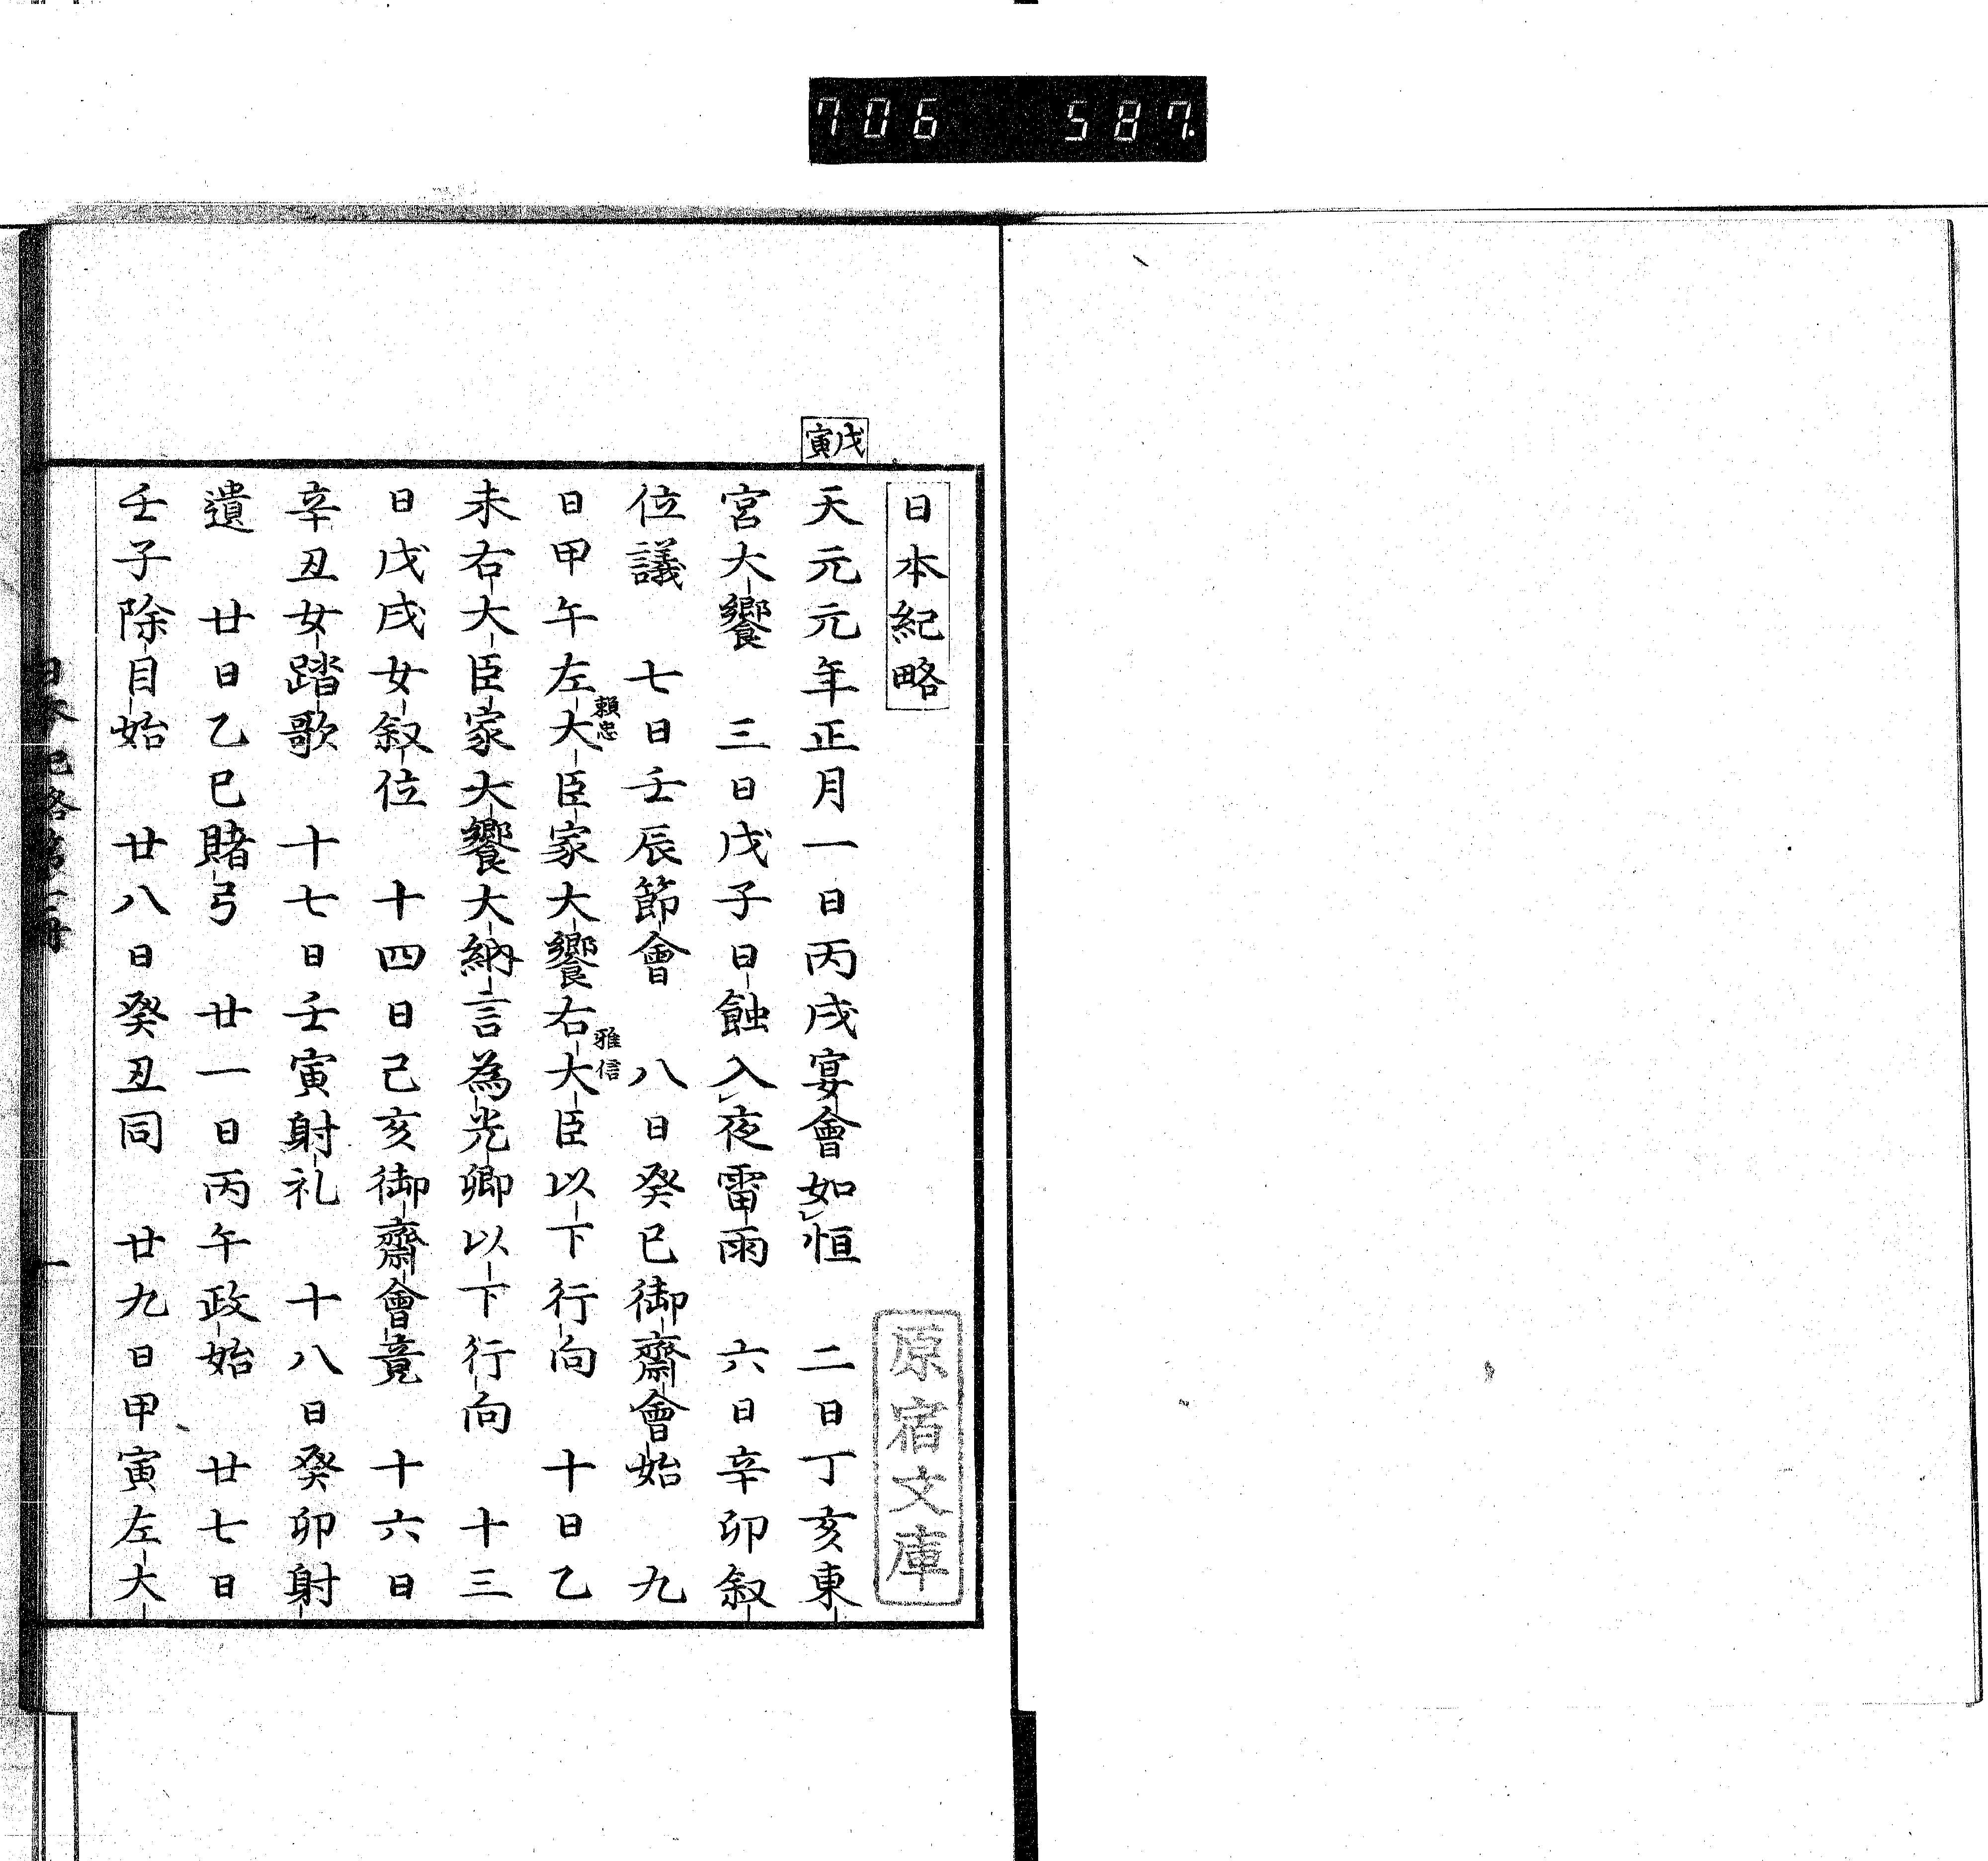 706 587
戊寅
日本紀略
原宿文庫
天元元年正月一日丙戌宴會如恒　二日丁亥東
宮大饗　三日戊子日蝕入夜雷雨　六日辛卯叙
位議　七日壬辰節會　八日癸巳御齋會始　九
日甲午左大臣家大饗右大臣以下行向　十日乙
賴忠
雅信
未右大臣家大饗大納言為光卿以下行向　十三
日戊戌女叙位　十四日己亥御齋會竟　十六日
辛丑女踏歌　十七日壬寅射礼　十八日癸卯射
遺　廿日乙巳賭弓　廿一日丙午政始　廿七日
壬子除目始　廿八日癸丑同　廿九日甲寅左大
日本紀略第
一